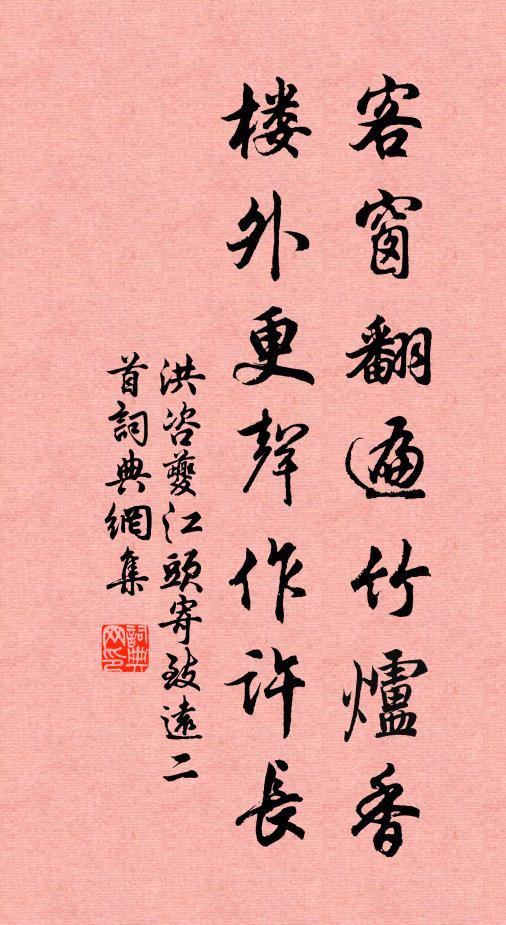 客窗翻遍竹爐香
楼外更聲作許長
洪咨夔江頭寄致遠二
首詞典網集
詞典网印